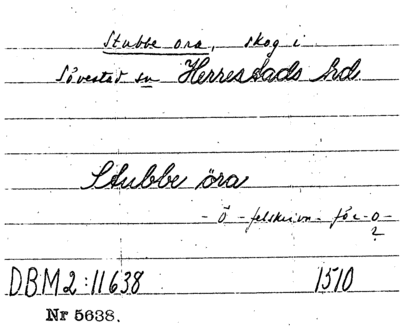 Stubbe ora, skog i
Sövestad sn Herrestads hd
Stubbe öra
- Ö - felskrivn - för - o -
?
DBM 2:11638 1510
Nr 5638.